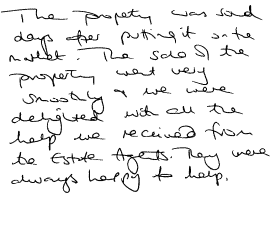 The property was sold
days after putting it on the
market. The sale of the
property went very
smoothly & we were
delighted with all the
help we received from
the Estate Agents. They were
always happy to help.